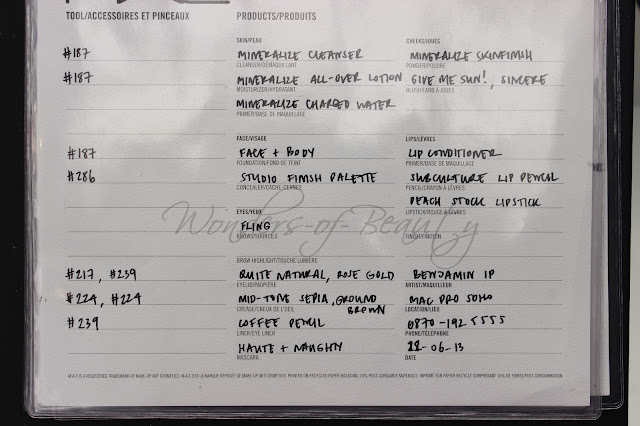 TOOL/ACCESSOIRES ET PINCEAUX PRODUCTS/PRODUITS
SKIN/PEAU CHEEKS/JOUES
#187 MINERALIZE CLEANSER MINERALIZE SKINFINISH
CLEANSER/DÉMAQUILLANT POWDER/POUDRE
#187 MINERALIZE ALL-OVER LOTION GIVE ME SUN!, SINCERE
MOISTURIZER/HYDRATANT BLUSH/FARD À JOUES
MINERALIZE CHARGED WATER
PRIMER/BASE DE MAQUILLAGE
FACE/VISAGE LIPS/LÈVRES
#187 FACE + BODY LIP CONDITIONER
FOUNDATION/FOND DE TEINT PRIMER/BASE DE MAQUILLAGE
#286 STUDIO FINISH PALETTE SUBCULTURE LIP PENCIL
CONCEALER/CACHE-CERNES PENCIL/CRAYON À LÈVRES
PEACH STOCK LIPSTICK
EYES/YEUX LIPSTICK/ROUGE À LÈVRES
Wonders-of-Beauty
FLING
BROWS/SOURCILS FINISH/FINITION
BROW HIGHLIGHT/TOUCHE LUMIÈRE
#217, #239 QUITE NATURAL, ROSE GOLD BENJAMIN IP
EYELID/PAUPIÈRE ARTIST/MAQUILLEUR
#224, #224 MID-TONE SEPIA, GROUND BROWN MAC PRO SOHO
CREASE/CREUX DE L'OEIL LOCATION/LIEU
#239 COFFEE PENCIL 0870-192 5555
LINER/EYE LINER PHONE/TÉLÉPHONE
HAUTE + NAUGHTY 22-06-13
MASCARA DATE
M·A·C IS A REGISTERED TRADEMARK OF MAKE-UP ART COSMETICS. M·A·C EST LA MARQUE DÉPOSÉE DE MAKE-UP ART COSMETICS. PRINTED ON RECYCLED PAPER INCLUDING 10% POST-CONSUMER MATERIALS. IMPRIMÉ SUR PAPIER RECYCLÉ COMPRENANT 10% DE FIBRES POST-CONSOMMATION